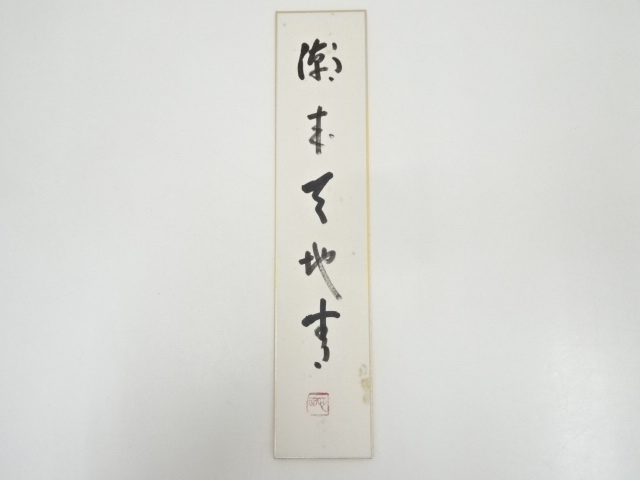 潮来天地青